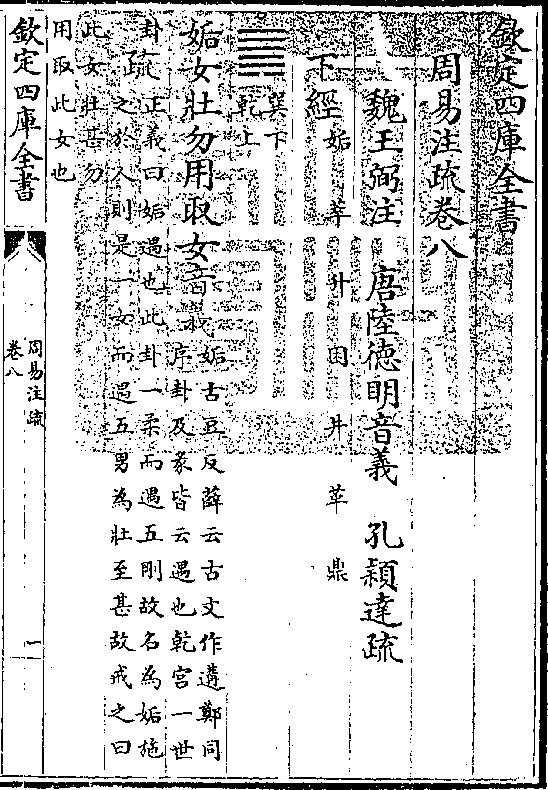 欽定四庫全書
周易注疏卷八
魏王弼注　唐陸德明音義　孔穎達疏
下經　姤　萃　升　困　井　革　鼎
巽下
乾上
姤女壯勿用取女音義姤古豆反薛云古文作遘鄭同
序卦及彖皆云遇也乾宮一世
卦疏正義曰姤遇也此卦一柔而遇五剛故名為姤施
之於人則是一女而遇五男為壯至甚故戒之曰
此女壯甚勿
用取此女也
欽定四庫全書
周易注疏
卷八
一